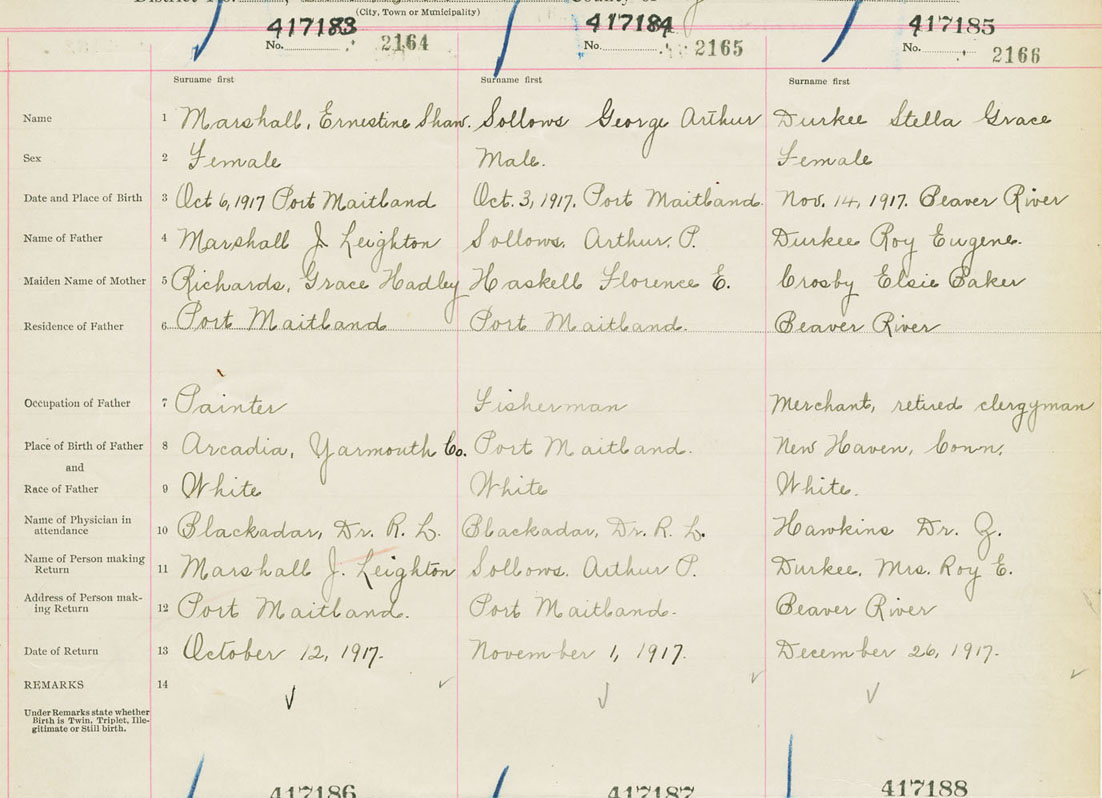 (City, Town or Municipality)
417183 417184 417185
No. 2164 No. 2165 No. 2166
Suruame first Surname first Surname first
Name 1 Marshall, Ernestine Shaw. Sollows George Arthur Durkee Stella Grace
Sex 2 Female Male. Female
Date and Place of Birth 3 Oct 6, 1917 Port Maitland Oct. 3, 1917. Port Maitland. Nov. 14, 1917. Beaver River
Name of Father 4 Marshall J Leighton Sollows. Arthur. P. Durkee Roy Eugene.
Maiden Name of Mother 5 Richards, Grace Hadley Haskell Florence E. Crosby Elsie Baker
Residence of Father 6 Port Maitland Port Maitland. Beaver River
Occupation of Father 7 Painter Fisherman Merchant, retired clergyman
Place of Birth of Father 8 Arcadia, Yarmouth Co. Port Maitland. New Haven, Conn.
and
Race of Father 9 White White White.
Name of Physician in
attendance 10 Blackadar, Dr. R. L. Blackadar, Dr. R. L. Hawkins Dr. Z.
Name of Person making
Return 11 Marshall J. Leighton Sollows. Arthur P. Durkee, Mrs. Roy E.
Address of Person mak-
ing Return 12 Port Maitland. Port Maitland. Beaver River
Date of Return 13 October 12, 1917. November 1, 1917. December 26, 1917.
REMARKS 14
Under Remarks state whether
Birth is Twin, Triplet, Ille-
gitimate or Still birth.
417186 417187 417188